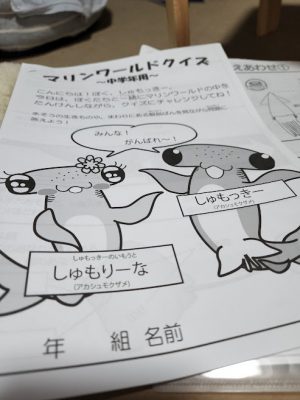 マリンワールドクイズ
～中学年用～
こんにちは！ぼく、しゅもっきー。
今日は、ぼくたちと一緒にマリンワールドの中を
たんけんしながら、クイズにチャレンジしてね！
答えよう！
みんな！
がんばれ～！
しゅもっきー
（アカシュモクザメ）
しゅもっきーのいもうと
しゅもりーな
（アカシュモクザメ）
年 組 名前
えあわせ①